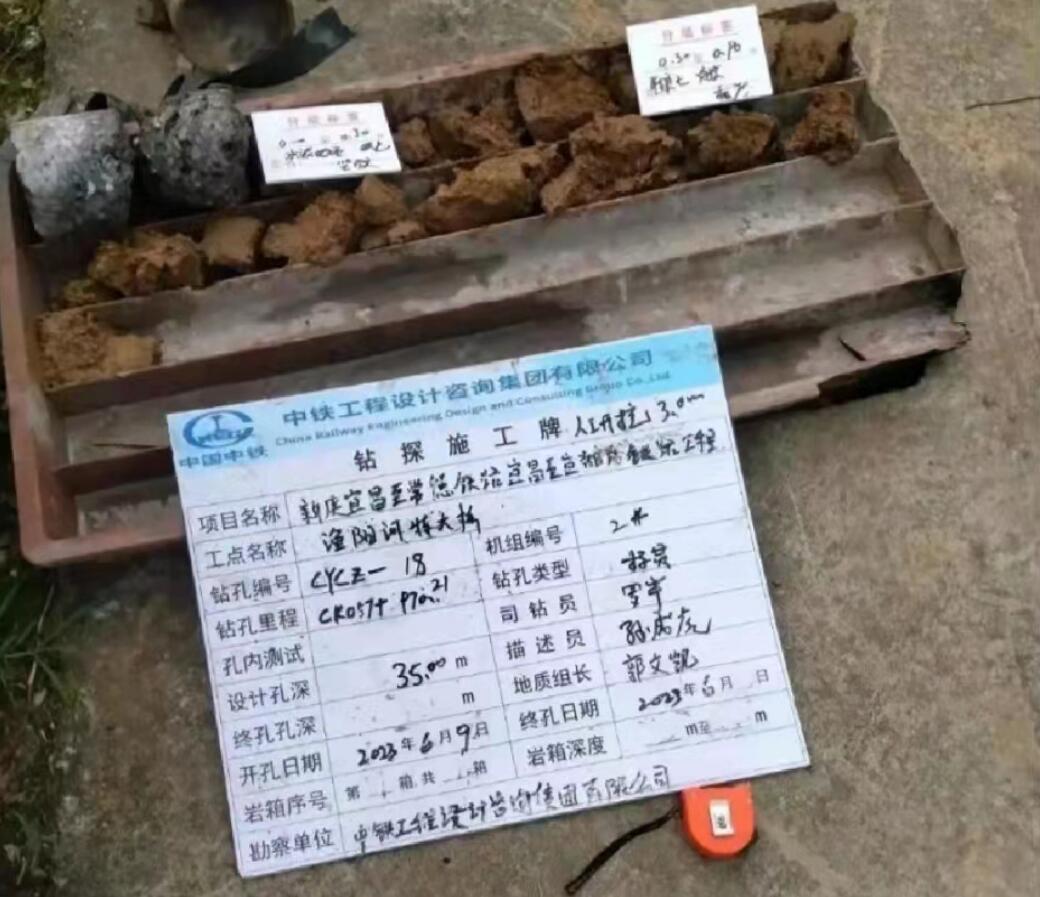 分层标签
0.30 至 0.90
分层标签
0.00 至 0.30
中铁工程设计咨询集团有限公司
China Railway Engineering Design and Consulting Group Co.,Ltd
中国中铁
钻探施工牌 人工开挖 3.0m
项目名称 新建宜昌至常德铁路宜昌至宜都段 工程
工点名称 渔阳河特大桥
机组编号 2#
钻孔编号 CYCZ-18
钻孔类型
钻孔里程 CK057+970.21
司钻员 罗军
孔内测试
描述员 孙成虎
设计孔深 35.00 m
地质组长 郭文凯
终孔孔深 m
终孔日期 2023年6月 日
开孔日期 2023年6月9日
岩箱深度 m至 m
岩箱序号 第 箱共 箱
勘察单位 中铁工程设计咨询集团有限公司